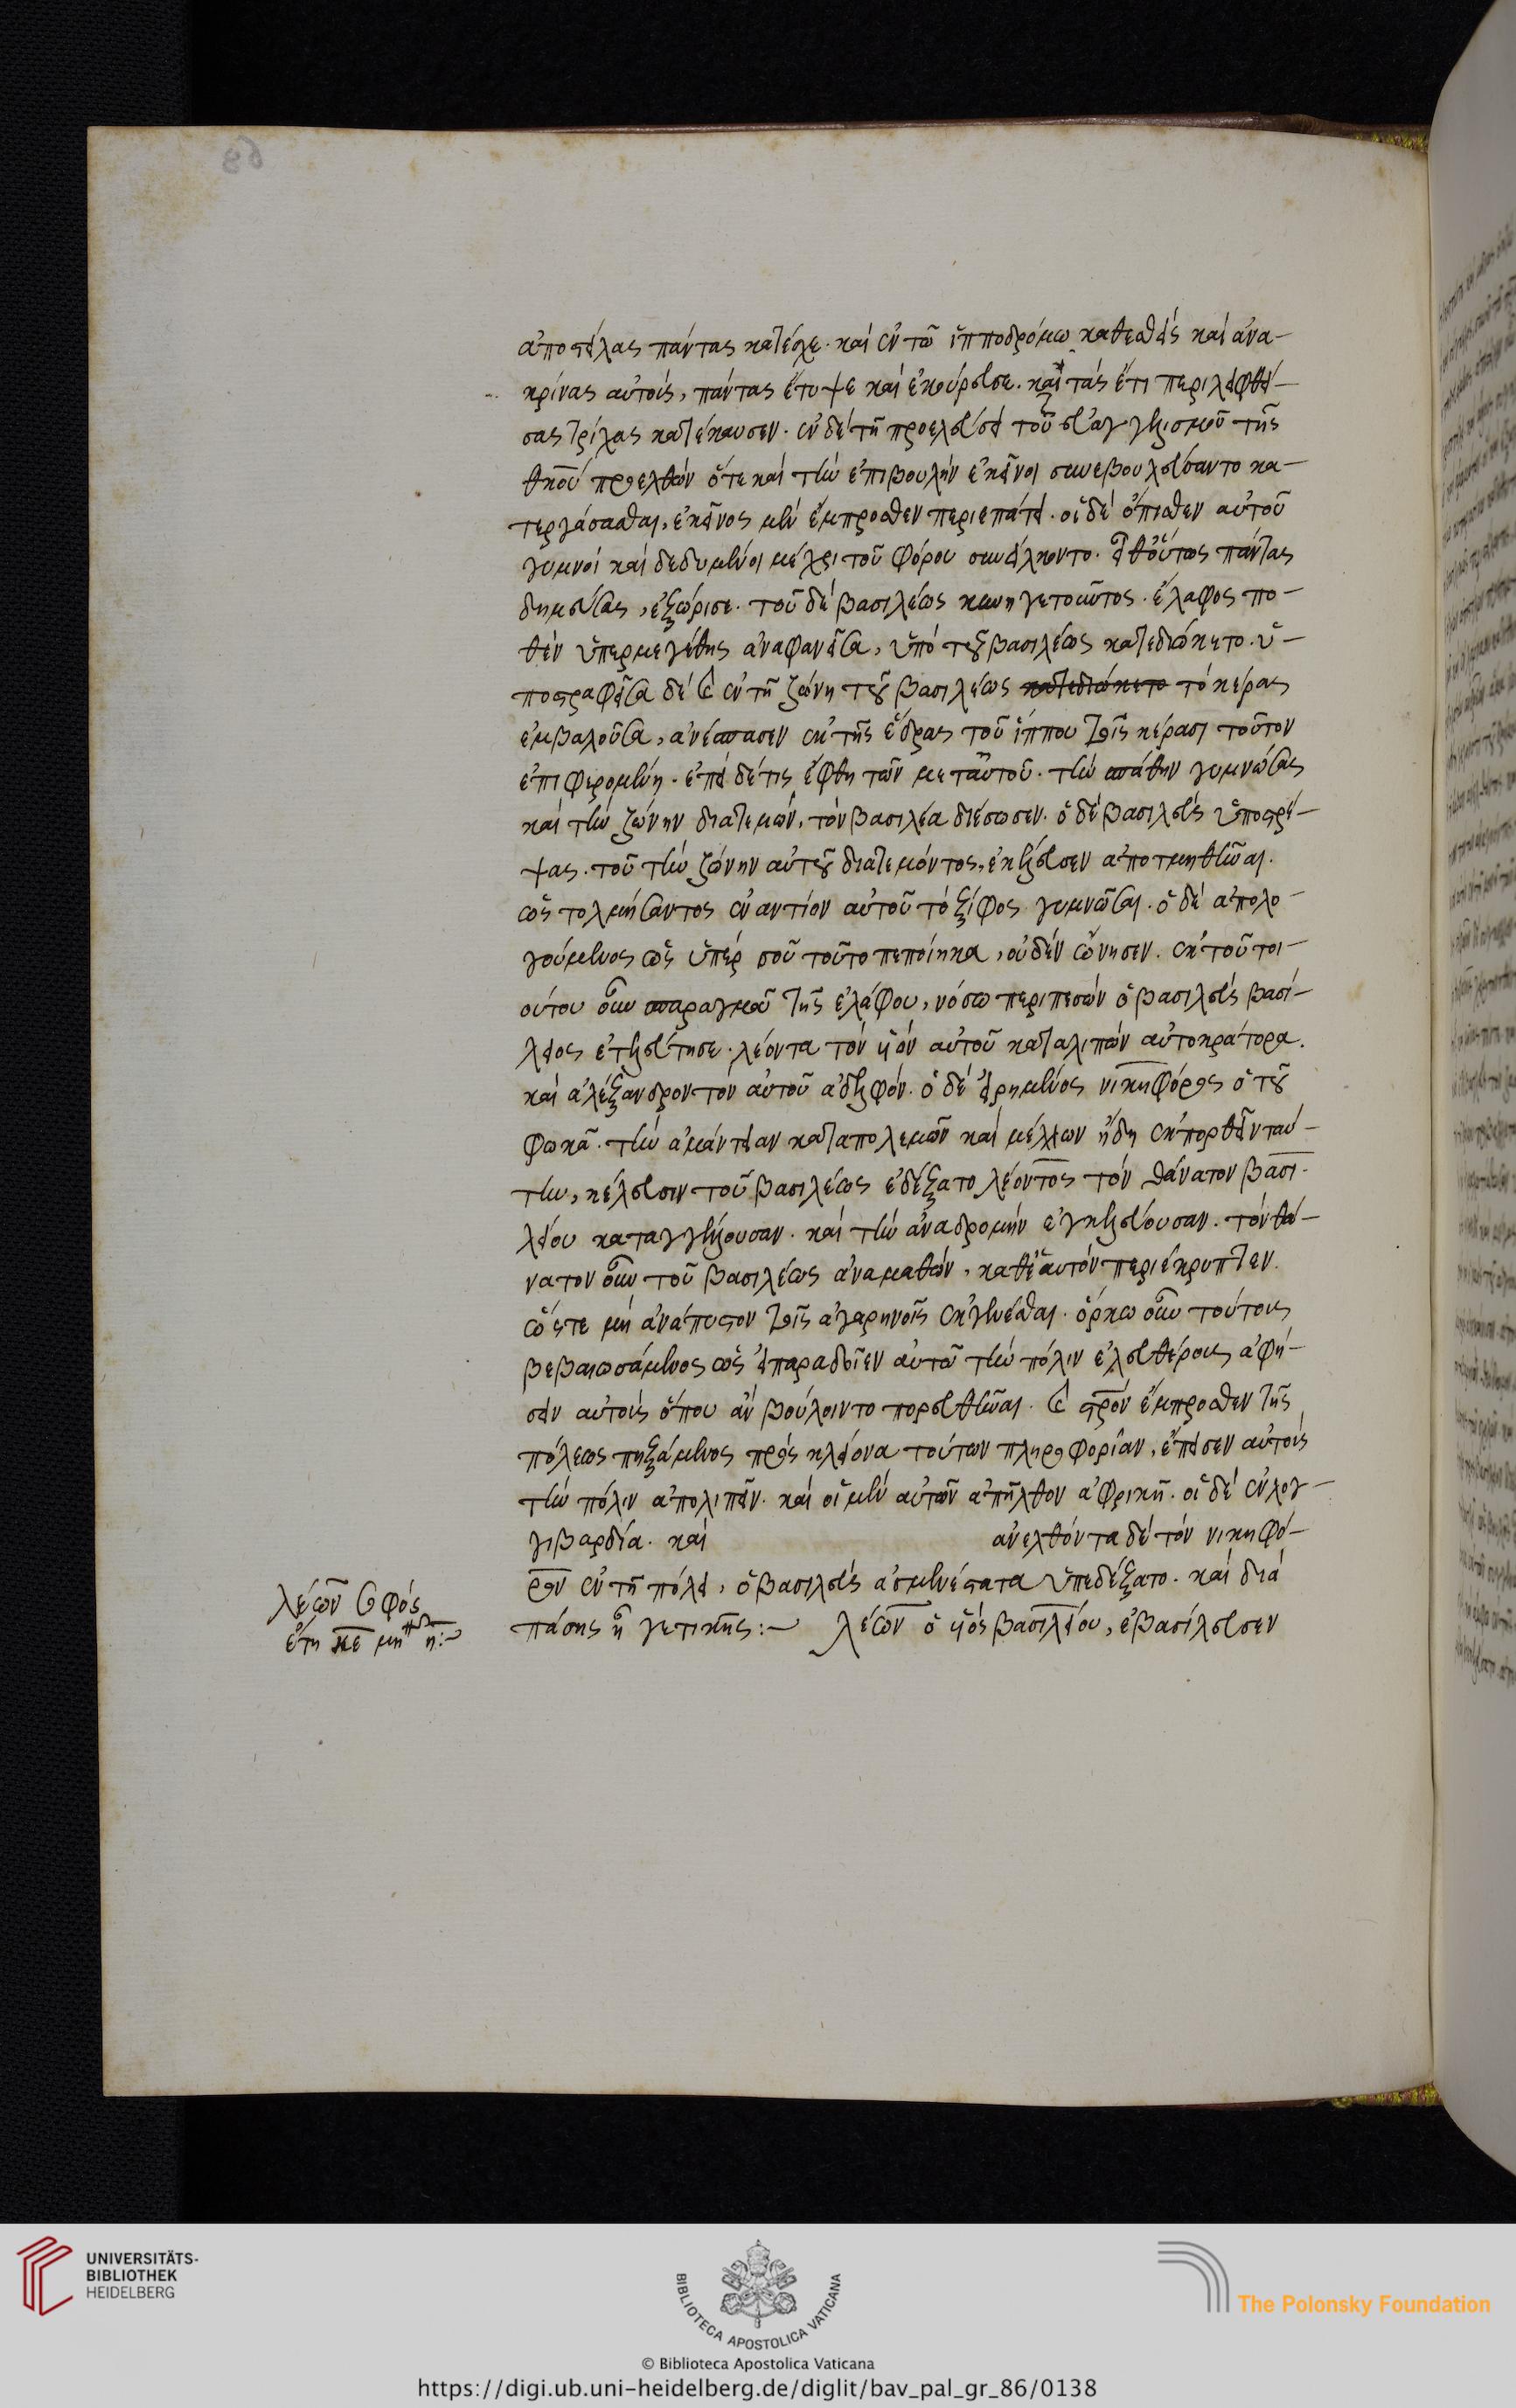 ἀποστείλας πάντας κατέσχε. καὶ ἐν τῶ ἱπποδρόμω καθεσθεὶς καὶ ἀνα-
κρίνας αὐτοὺς, πάντας ἔτυψε καὶ ἐκούρευσε. καὶ τὰς ἔτι περιλειφθεί-
σας τρίχας κατέκαυσεν. ἐν δὲ τῆ προελεύσει τοῦ εὐαγγελισμοῦ τῆς
θκου προελθὼν ὅτε καὶ τὴν ἐπιβουλὴν ἐκεῖνοι συνεβουλεύσαντο κα-
τεργάσασθαι, ἐκεῖνος μὲν ἔμπροσθεν περιεπάτει. οἱ δὲ ὄπισθεν αὐτοῦ
γυμνοὶ καὶ δεδεμένοι μέχρι τοῦ φόρου συνείλκοντο. εἶθ' οὕτως πάντας
δημεύσας, ἐξώρισε. τοῦ δὲ βασιλέως κυνηγετοῦντος. ἔλαφος πο-
θὲν ὑπερμεγέθης ἀναφανεῖσα, ὑπὸ τοῦ βασιλέως κατεδιώκετο. ὑ-
ποστραφεῖσα δὲ καὶ ἐν τῆ ζώνη τοῦ βασιλέως κατεδιώκετο τὸ κέρας
ἐμβαλοῦσα, ἀνέσπασεν ἐκ τῆς ἕδρας τοῦ ἵππου τοῖς κέρασι τοῦτον
ἐπιφερομένη. ἐπεὶ δέ τις ἔφθη τῶν μετ' αὐτοῦ. τὴν σπάθην γυμνώσας
καὶ τὴν ζώνην διατεμὼν, τὸν βασιλέα διέσωσεν. ὁ δὲ βασιλεὺς ὑποστρέ-
ψας. τοῦ τὴν ζώνην αὐτοῦ διατεμόντος, ἐκέλευσεν ἀποτμηθῆναι.
ὡς τολμήσαντος ἐναντίον αὐτοῦ τὸ ξίφος γυμνῶσαι. ὁ δὲ ἀπολο-
γούμενος ὡς ὑπὲρ σοῦ τοῦτο πεποίηκα, οὐδὲν ὤνησεν. ἐκ τοῦ τοι-
ούτου οὖν σπαραγμοῦ τῆς ἐλάφου, νόσω περιπεσὼν ὁ βασιλεὺς βασί-
λειος ἐτελεύτησε. λέοντα τὸν υἱὸν αὐτοῦ καταλιπὼν αὐτοκράτορα.
καὶ ἀλέξανδρον τὸν αὐτοῦ ἀδελφόν. ὁ δὲ εἰρημένος νικηφόρος ὁ τοῦ
φωκᾶ. τὴν ἀμάντειαν καταπολεμῶν καὶ μέλλων ἤδη ἐκπορθεῖν ταύ-
την, κέλευσιν τοῦ βασιλέως ἐδέξατο λέοντος τὸν θάνατον βασι-
λείου καταγγέλλουσαν. καὶ τὴν ἀναδρομὴν ἐγκελεύουσαν. τὸν θά-
νατον οὖν τοῦ βασιλέως ἀναμαθὼν, καθ' ἑαυτὸν περιέκρυπτεν.
ὥστε μὴ ἀνάπυστον τοῖς ἀγαρηνοῖς ἐκγενέσθαι. ὅρκω οὖν τούτους
βεβαιωσάμενος ὡς εἰ παραδοῖεν αὐτῶ τὴν πόλιν ἐλευθέρους ἀφή-
σειν αὐτοὺς ὅπου ἂν βούλοιντο πορευθῆναι. καὶ στρον ἔμπροσθεν τῆς
πόλεως πηξάμενος πρὸς κλείονα τούτων πληροφορίαν, ἔπεισεν αὐτοὺς
τὴν πόλιν ἀπολιπεῖν. καὶ οἱ μὲν αὐτῶν ἀπῆλθον ἀφρικῆ. οἱ δὲ ἐν λογ-
γιβαρδία. καὶ ἀνελθόντα δὲ τὸν νικηφό-
ρον ἐν τῆ πόλει, ὁ βασιλεὺς ἀσμενέστατα ὑπεδέξατο. καὶ διὰ
πάσης ἦν γετικῆς:~ λέων ὁ υἱὸς βασιλείου, ἐβασίλευσεν
λέων σοφός
ἔτη κε μη η:~
UNIVERSITÄTS-
BIBLIOTHEK
HEIDELBERG
BIBLIOTECA APOSTOLICA VATICANA
The Polonsky Foundation
© Biblioteca Apostolica Vaticana
https://digi.ub.uni-heidelberg.de/diglit/bav_pal_gr_86/0138